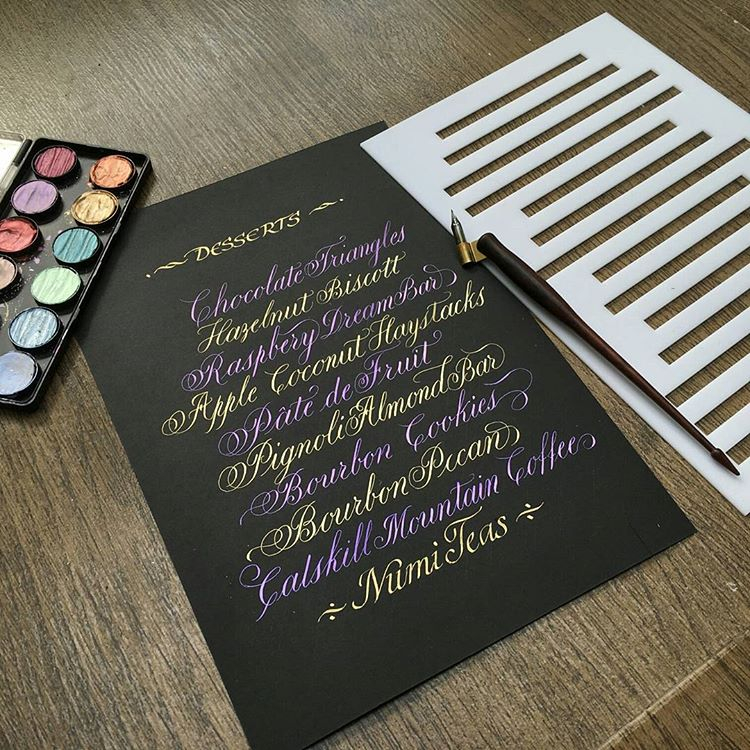 DESSERTS
Chocolate Triangles
Hazelnut Biscott
Raspbery Dream Bar
Apple Coconut Haystacks
Pâte de Fruit
Pignoli Almond Bar
Bourbon Cookies
Bourbon Pecan
Catskill Mountain Coffee
Numi Teas